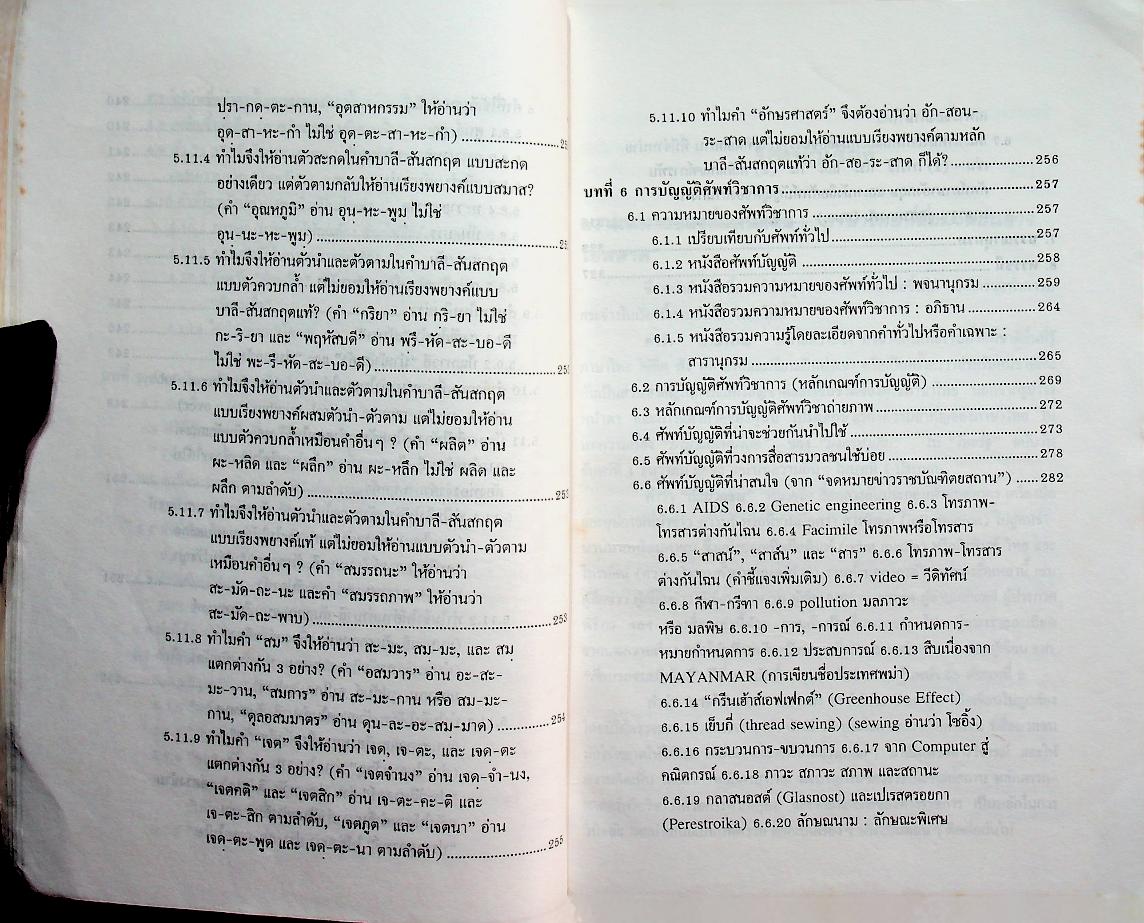 ปรา-กด-ตะ-กาน, “อุตสาหกรรม” ให้อ่านว่า
อุด-สา-หะ-กำ ไม่ใช่ อุด-ตะ-สา-หะ-กำ)
5.11.4 ทำไมจึงให้อ่านตัวสะกดในคำบาลี-สันสกฤต แบบสะกด
อย่างเดียว แต่ตัวตามกลับให้อ่านเรียงพยางค์แบบสมาส?
(คำ “อุณหภูมิ” อ่าน อุน-หะ-พูม ไม่ใช่
อุน-นะ-หะ-พูม)
5.11.5 ทำไมจึงให้อ่านตัวนำและตัวตามในคำบาลี-สันสกฤต
แบบตัวควบกล้ำ แต่ไม่ยอมให้อ่านเรียงพยางค์แบบ
บาลี-สันสกฤตแท้? (คำ “กริยา” อ่าน กริ-ยา ไม่ใช่
กะ-ริ-ยา และ “พฤหัสบดี” อ่าน พรึ-หัด-สะ-บอ-ดี
ไม่ใช่ พะ-รึ-หัด-สะ-บอ-ดี)
5.11.6 ทำไมจึงให้อ่านตัวนำและตัวตามในคำบาลี-สันสกฤต
แบบเรียงพยางค์ผสมตัวนำ-ตัวตาม แต่ไม่ยอมให้อ่าน
แบบตัวควบกล้ำเหมือนคำอื่นๆ ? (คำ “ผลิต” อ่าน
ผะ-หลิด และ “ผลึก” อ่าน ผะ-หลึก ไม่ใช่ ผลิด และ
ผลึก ตามลำดับ)
5.11.7 ทำไมจึงให้อ่านตัวนำและตัวตามในคำบาลี-สันสกฤต
แบบเรียงพยางค์แท้ แต่ไม่ยอมให้อ่านแบบตัวนำ-ตัวตาม
เหมือนคำอื่นๆ ? (คำ “สมรรถนะ” ให้อ่านว่า
สะ-มัด-ถะ-นะ และคำ “สมรรถภาพ” ให้อ่านว่า
สะ-มัด-ถะ-พาบ) 253
5.11.8 ทำไมคำ “สม” จึงให้อ่านว่า สะ-มะ, สม-มะ, และ สม
แตกต่างกัน 3 อย่าง? (คำ “อสมวาร” อ่าน อะ-สะ-
มะ-วาน, “สมการ” อ่าน สะ-มะ-กาน หรือ สม-มะ-
กาน, “ดุลอสมมาตร” อ่าน ดุน-ละ-อะ-สม-มาด) 254
5.11.9 ทำไมคำ “เจต” จึงให้อ่านว่า เจด, เจ-ตะ, และ เจด-ตะ
แตกต่างกัน 3 อย่าง? (คำ “เจตจำนง” อ่าน เจด-จำ-นง,
“เจตคติ” และ “เจตสิก” อ่าน เจ-ตะ-คะ-ติ และ
เจ-ตะ-สิก ตามลำดับ, “เจตภูต” และ “เจตนา” อ่าน
เจด-ตะ-พูด และ เจด-ตะ-นา ตามลำดับ) 255
5.11.10 ทำไมคำ “อักษรศาสตร์” จึงต้องอ่านว่า อัก-สอน-
ระ-สาด แต่ไม่ยอมให้อ่านแบบเรียงพยางค์ตามหลัก
บาลี-สันสกฤตแท้ว่า อัก-สอ-ระ-สาด ก็ได้? 256
บทที่ 6 การบัญญัติศัพท์วิชาการ 257
6.1 ความหมายของศัพท์วิชาการ 257
6.1.1 เปรียบเทียบกับศัพท์ทั่วไป 257
6.1.2 หนังสือศัพท์บัญญัติ 258
6.1.3 หนังสือรวมความหมายของศัพท์ทั่วไป : พจนานุกรม 259
6.1.4 หนังสือรวมความหมายของศัพท์วิชาการ : อภิธาน 264
6.1.5 หนังสือรวมความรู้โดยละเอียดจากคำทั่วไปหรือคำเฉพาะ :
สารานุกรม 265
6.2 การบัญญัติศัพท์วิชาการ (หลักเกณฑ์การบัญญัติ) 269
6.3 หลักเกณฑ์การบัญญัติศัพท์วิชาถ่ายภาพ 272
6.4 ศัพท์บัญญัติที่น่าจะช่วยกันนำไปใช้ 273
6.5 ศัพท์บัญญัติที่วงการสื่อสารมวลชนใช้บ่อย 278
6.6 ศัพท์บัญญัติที่น่าสนใจ (จาก “จดหมายข่าวราชบัณฑิตยสถาน”) 282
6.6.1 AIDS 6.6.2 Genetic engineering 6.6.3 โทรภาพ-
โทรสารต่างกันไฉน 6.6.4 Facimile โทรภาพหรือโทรสาร
6.6.5 “สาสน์”, “สาส์น” และ “สาร” 6.6.6 โทรภาพ-โทรสาร
ต่างกันไฉน (คำชี้แจงเพิ่มเติม) 6.6.7 video = วีดิทัศน์
6.6.8 กีฬา-กรีฑา 6.6.9 pollution มลภาวะ
หรือ มลพิษ 6.6.10 -การ, -การณ์ 6.6.11 กำหนดการ-
หมายกำหนดการ 6.6.12 ประสบการณ์ 6.6.13 สืบเนื่องจาก
MAYANMAR (การเขียนชื่อประเทศพม่า)
6.6.14 “กรีนเฮ้าส์เอฟเฟกต์” (Greenhouse Effect)
6.6.15 เย็บกี่ (thread sewing) (sewing อ่านว่า โซอิ้ง)
6.6.16 กระบวนการ-ขบวนการ 6.6.17 จาก Computer สู่
คณิตกรณ์ 6.6.18 ภาวะ สภาวะ สภาพ และสถานะ
6.6.19 กลาสนอสต์ (Glasnost) และเปเรสตรอยกา
(Perestroika) 6.6.20 ลักษณนาม : ลักษณะพิเศษ